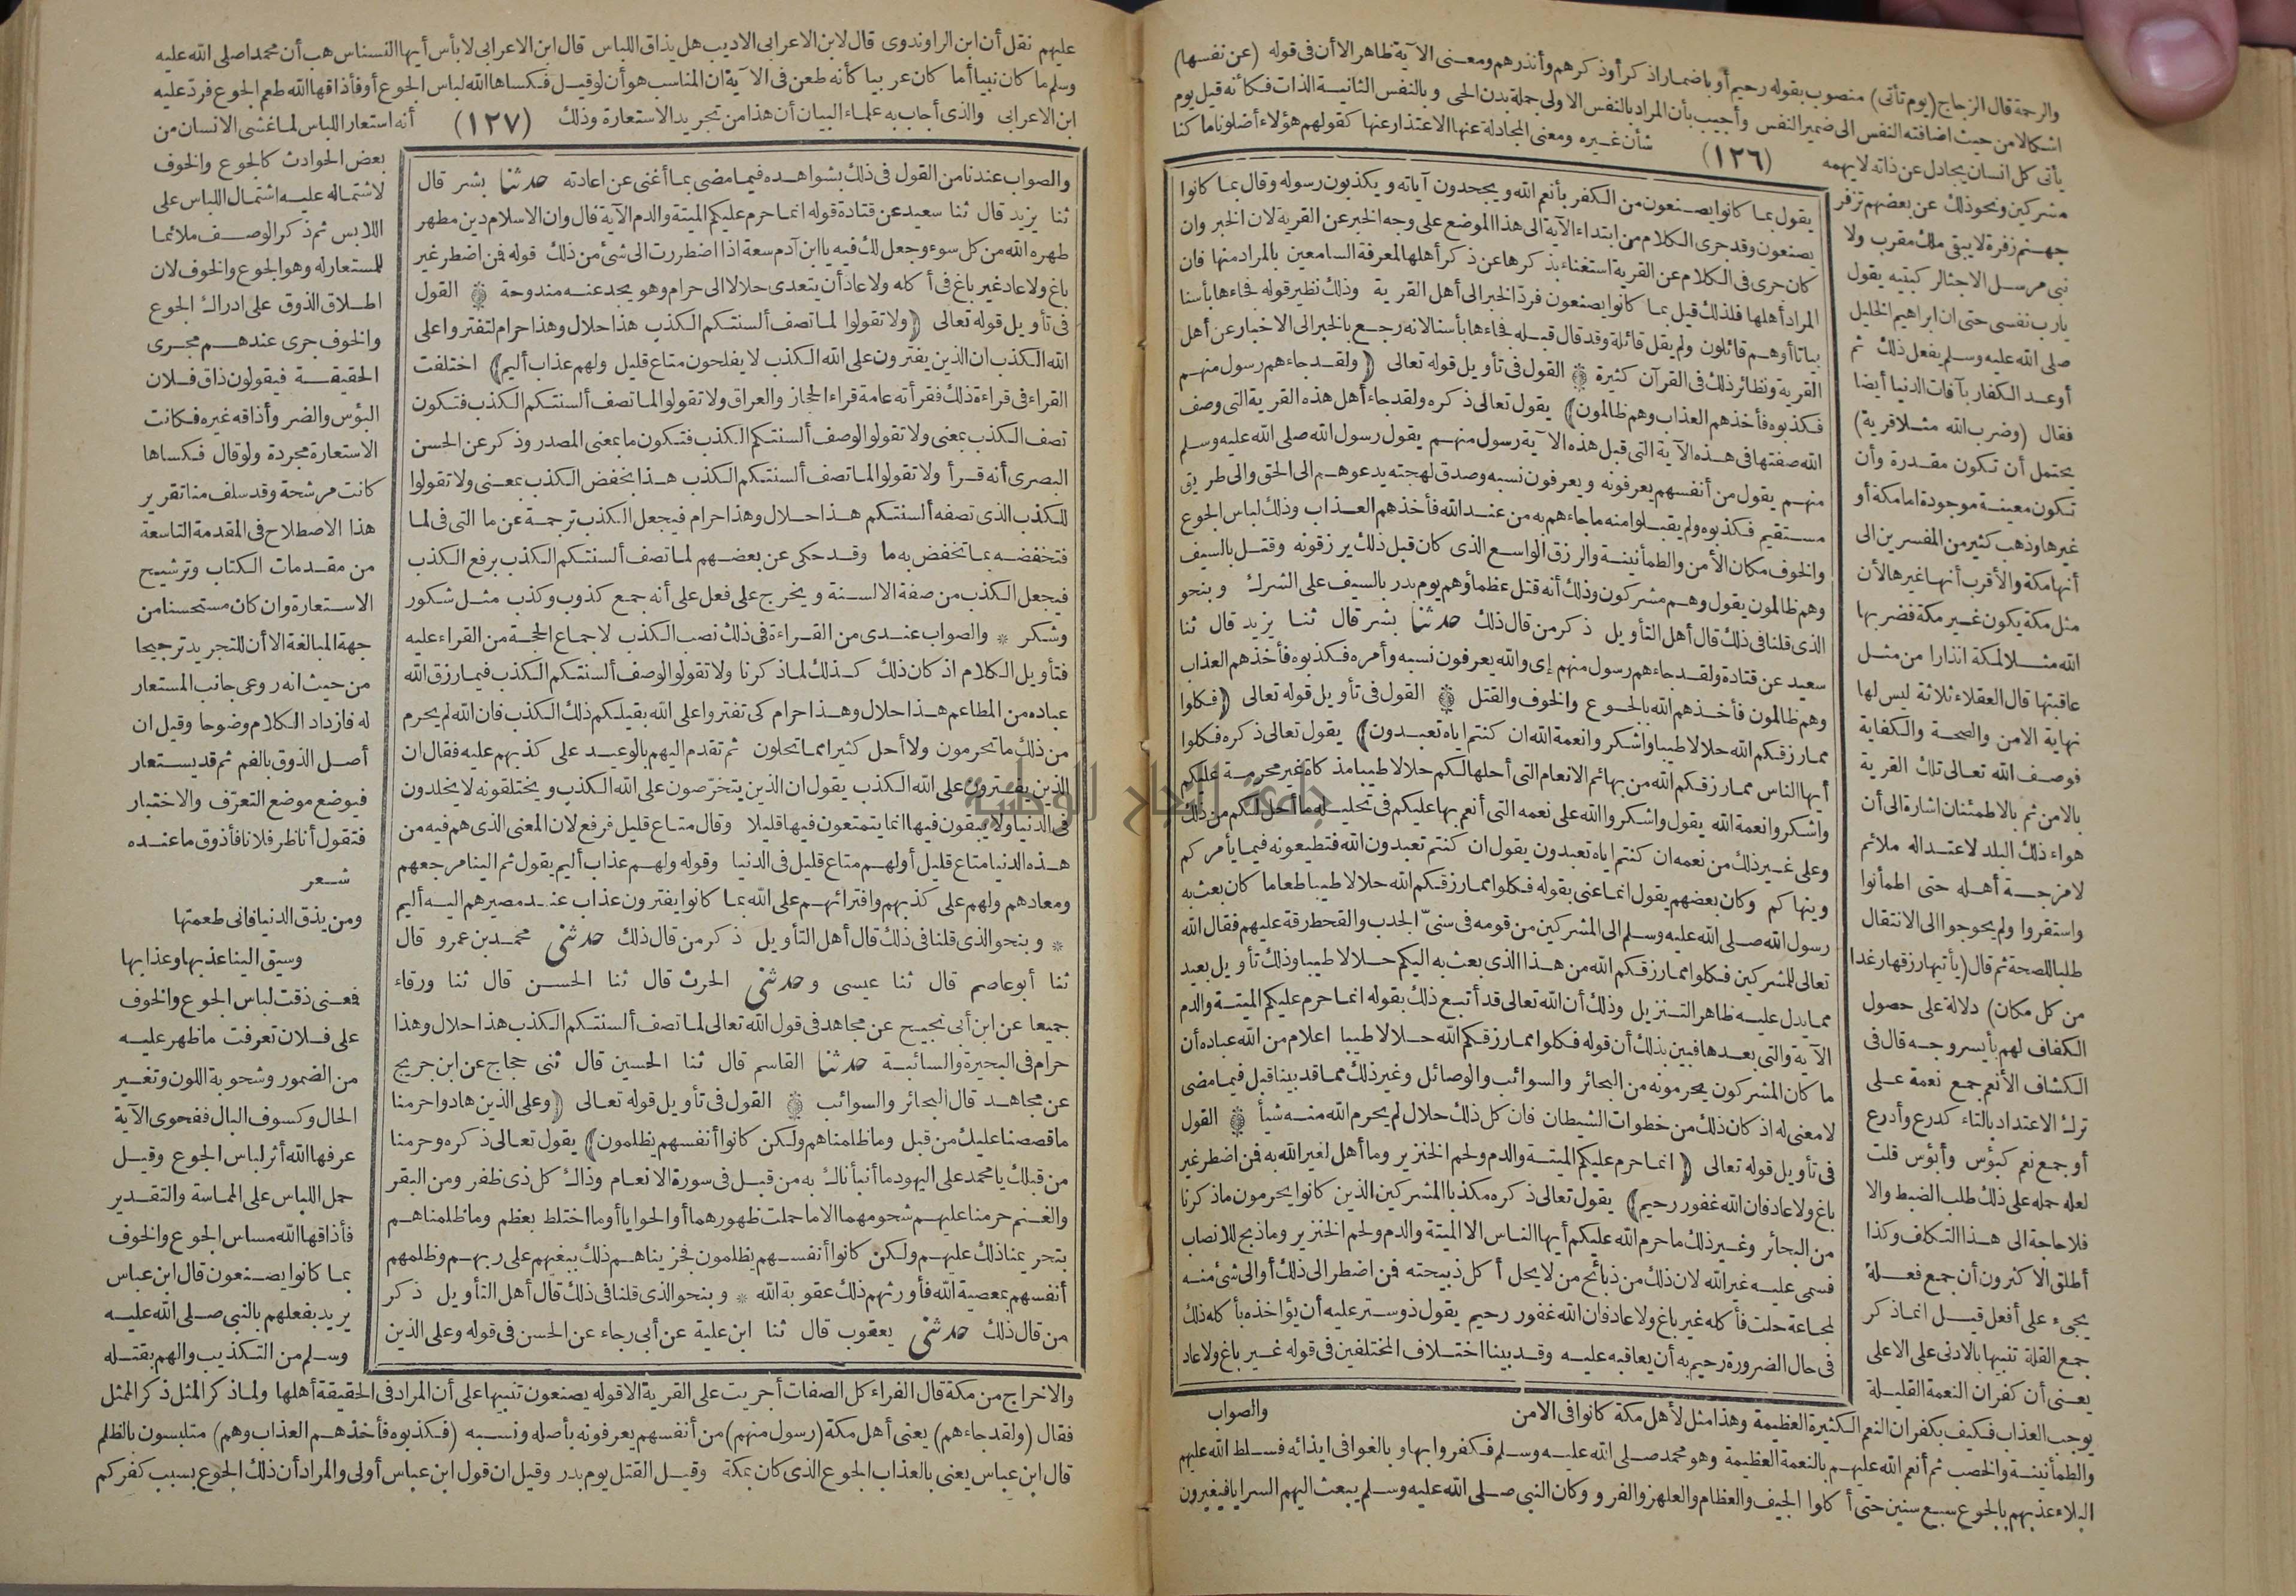 والرحمة قال الزجاج (يوم تأتى) منصوب بقوله رحيم أو باضمار اذكر أو ذكرهم وأنذرهم ومعنى الآية ظاهر الا أن فى قوله (عن نفسها)
اشكالا من حيث اضافة النفس الى ضمير النفس وأجيب بأن المراد بالنفس الاولى جملة بدن الحى وبالنفس الثانية الذات فكأنه قيل يوم
يأتى كل انسان يجادل عن ذاته لا يهمه (١٢٦) شأن غيره ومعنى المجادلة عنها الاعتذار عنها كقولهم هؤلاء أضلونا ما كنا
مشركين ونحو ذلك عن بعضهم تزفر
جهنم زفرة لا يبقى ملك مقرب ولا
نبى مرسل الا جثا لركبتيه يقول
يا رب نفسى حتى ان ابراهيم الخليل
صلى الله عليه وسلم يفعل ذلك ثم
أوعد الكفار بآفات الدنيا أيضا
فقال (وضرب الله مثلا قرية)
يحتمل أن تكون مقدرة وأن
تكون معينة موجودة اما مكة أو
غيرها وذهب كثير من المفسرين الى
أنها مكة والأقرب أنها غيرها لأن
مثل مكة يكون غير مكة فضربها
الله مثلا لمكة انذارا من مثل
عاقبتها قال العقلاء ثلاثة ليس لها
نهاية الامن والصحة والكفاية
فوصف الله تعالى تلك القرية
بالامن ثم بالاطمئنان اشارة الى أن
هواء ذلك البلد لاعتداله ملائم
لامزجة أهله حتى اطمأنوا
واستقروا ولم يحوجوا الى الانتقال
طلبا للصحة ثم قال (يأتيها رزقها رغدا
من كل مكان) دلالة على حصول
الكفاف لهم بأيسر وجه قال فى
الكشاف الأنعم جمع نعمة على
ترك الاعتداد بالتاء كدرع وأدرع
أو جمع نعم كبؤس وأبؤس قلت
لعله حمله على ذلك طلب الضبط والا
فلا حاجة الى هذا التكلف وكذا
أطلق الاكثرون أن جمع فعلة
يجىء على أفعل قيل انما ذكر
جمع القلة تنبيها بالادنى على الاعلى
يعنى أن كفران النعمة القليلة
يقول بما كانوا يصنعون من الكفر بأنعم الله ويجحدون آياته ويكذبون رسوله وقال بما كانوا
يصنعون وقد جرى الكلام من ابتداء الآية الى هذا الموضع على وجه الخبر عن القرية لان الخبر وان
كان جرى فى الكلام عن القرية استغناء بذكرها عن ذكر أهلها لمعرفة السامعين بالمراد منها فان
المراد أهلها فلذلك قيل بما كانوا يصنعون فرد الخبر الى أهل القرية وذلك نظير قوله فجاءها بأسنا
بياتا أو هم قائلون ولم يقل قائلة وقد قال قبله فجاءها بأسنا لانه رجع بالخبر الى الاخبار عن أهل
القرية ونظائر ذلك فى القرآن كثيرة ۞ القول فى تأويل قوله تعالى ﴿ولقد جاءهم رسول منهم
فكذبوه فأخذهم العذاب وهم ظالمون﴾ يقول تعالى ذكره ولقد جاء أهل هذه القرية التى وصف
الله صفتها فى هذه الآية التى قبل هذه الآية رسول منهم يقول رسول الله صلى الله عليه وسلم
منهم يقول من أنفسهم يعرفونه ويعرفون نسبه وصدق لهجته يدعوهم الى الحق والى طريق
مستقيم فكذبوه ولم يقبلوا منه ما جاءهم به من عند الله فأخذهم العذاب وذلك لباس الجوع
والخوف مكان الأمن والطمأنينة والرزق الواسع الذى كان قبل ذلك يرزقونه وقتل بالسيف
وهم ظالمون يقول وهم مشركون وذلك أنه قتل عظماؤهم يوم بدر بالسيف على الشرك وبنحو
الذى قلنا فى ذلك قال أهل التأويل ذكر من قال ذلك حدثنا بشر قال ثنا يزيد قال ثنا
سعيد عن قتادة ولقد جاءهم رسول منهم إى والله يعرفون نسبه وأمره فكذبوه فأخذهم العذاب
وهم ظالمون فأخذهم الله بالجوع والخوف والقتل ۞ القول فى تأويل قوله تعالى ﴿فكلوا
مما رزقكم الله حلالا طيبا واشكروا نعمة الله ان كنتم اياه تعبدون﴾ يقول تعالى ذكره فكلوا
أيها الناس مما رزقكم الله من بهائم الانعام التى أحلها لكم حلالا طيبا مذكاة غير محرمة عليكم
واشكروا نعمة الله يقول واشكروا الله على نعمه التى أنعم بها عليكم فى تحليله ما أحل لكم من ذلك
وعلى غير ذلك من نعمه ان كنتم اياه تعبدون يقول ان كنتم تعبدون الله فتطيعونه فيما يأمركم
وينهاكم وكان بعضهم يقول انما عنى بقوله فكلوا مما رزقكم الله حلالا طيبا طعاما كان بعث به
رسول الله صلى الله عليه وسلم الى المشركين من قومه فى سنى الجدب والقحط رقة عليهم فقال الله
تعالى للمشركين فكلوا مما رزقكم الله من هذا الذى بعث به اليكم حلالا طيبا وذلك تأويل بعيد
مما يدل عليه ظاهر التنزيل وذلك أن الله تعالى قد أتبع ذلك بقوله انما حرم عليكم الميتة والدم
الآية والتى بعدها فبين بذلك أن قوله فكلوا مما رزقكم الله حلالا طيبا اعلام من الله عباده أن
ما كان المشركون يحرمونه من البحائر والسوائب والوصائل وغير ذلك مما قد بينا قبل فيما مضى
لا معنى له اذ كان ذلك من خطوات الشيطان فان كل ذلك حلال لم يحرم الله منه شيأ ۞ القول
فى تأويل قوله تعالى ﴿انما حرم عليكم الميتة والدم ولحم الخنزير وما أهل لغير الله به فمن اضطر غير
باغ ولا عاد فان الله غفور رحيم﴾ يقول تعالى ذكره مكذبا المشركين الذين كانوا يحرمون ما ذكرنا
من البحائر وغير ذلك ما حرم الله عليكم أيها الناس الا الميتة والدم ولحم الخنزير وما ذبح للانصاب
فسمى عليه غير الله لان ذلك من ذبائح من لا يحل أكل ذبيحته فمن اضطر الى ذلك أو الى شئ منه
لمجاعة حلت فأكله غير باغ ولا عاد فان الله غفور رحيم يقول ذو ستر عليه أن يؤاخذه بأكله ذلك
فى حال الضرورة رحيم به أن يعاقبه عليه وقد بينا اختلاف المختلفين فى قوله غير باغ ولا عاد
والصواب
يوجب العذاب فكيف بكفران النعم الكثيرة العظيمة وهذا مثل لأهل مكة كانوا فى الامن
والطمأنينة والخصب ثم أنعم الله عليهم بالنعمة العظيمة وهو محمد صلى الله عليه وسلم فكفروا بها وبالغوا فى ايذائه فسلط الله عليهم
البلاء عذبهم بالجوع سبع سنين حتى أكلوا الجيف والعظام والعلهز والفرو وكان النبى صلى الله عليه وسلم يبعث اليهم السرايا فيغيرون
عليهم نقل أن ابن الراوندى قال لابن الاعرابى الاديب هل يذاق اللباس قال ابن الاعرابى لا بأس أيها النسناس هب أن محمدا صلى الله عليه
وسلم ما كان نبيا أما كان عربيا كأنه طعن فى الآية ان المناسب هو أن لو قيل فكساها الله لباس الجوع أو فأذاقها الله طعم الجوع فرد عليه
ابن الاعرابى والذى أجاب به علماء البيان أن هذا من تجريد الاستعارة وذلك (١٢٧) أنه استعار اللباس لما غشى الانسان من
بعض الحوادث كالجوع والخوف
لاشتماله عليه اشتمال اللباس على
اللابس ثم ذكر الوصف ملائما
للمستعار له وهو الجوع والخوف لان
اطلاق الذوق على ادراك الجوع
والخوف جرى عندهم مجرى
الحقيقة فيقولون ذاق فلان
البؤس والضر وأذاقه غيره فكانت
الاستعارة مجردة ولو قال فكساها
كانت مرشحة وقد سلف منا تقرير
هذا الاصطلاح فى المقدمة التاسعة
من مقدمات الكتاب وترشيح
الاستعارة وان كان مستحسنا من
جهة المبالغة الا أن للتجريد ترجيحا
من حيث انه روعى جانب المستعار
له فازداد الكلام وضوحا وقيل ان
أصل الذوق بالفم ثم قد يستعار
فيوضع موضع التعرّف والاختبار
فتقول أناظر فلانا فأذوق ما عنده
شعر
ومن يذق الدنيا فانى طعمتها
وسيق الينا عذبها وعذابها
فعنى ذقت لباس الجوع والخوف
على فلان تعرفت ما ظهر عليه
من الضمور وشحوبة اللون وتغير
الحال وكسوف البال ففحوى الآية
عرفها الله أثر لباس الجوع وقيل
حمل اللباس على المماسة والتقدير
فأذاقها الله مساس الجوع والخوف
بما كانوا يصنعون قال ابن عباس
يريد بفعلهم بالنبى صلى الله عليه
وسلم من التكذيب والهم بقتله
والصواب عندنا من القول فى ذلك بشواهده فيما مضى بما أغنى عن اعادته حدثنا بشر قال
ثنا يزيد قال ثنا سعيد عن قتادة قوله انما حرم عليكم الميتة والدم الآية قال وان الاسلام دين مطهر
طهره الله من كل سوء وجعل لك فيه يا ابن آدم سعة اذا اضطررت الى شئ من ذلك قوله فمن اضطر غير
باغ ولا عاد غير باغ فى أكله ولا عاد أن يتعدى حلالا الى حرام وهو يجد عنه مندوحة ۞ القول
فى تأويل قوله تعالى ﴿ولا تقولوا لما تصف ألسنتكم الكذب هذا حلال وهذا حرام لتفتروا على
الله الكذب ان الذين يفترون على الله الكذب لا يفلحون متاع قليل ولهم عذاب أليم﴾ اختلفت
القراء فى قراءة ذلك فقرأته عامة قراء الحجاز والعراق ولا تقولوا لما تصف ألسنتكم الكذب فتكون
تصف الكذب بمعنى ولا تقولوا لوصف ألسنتكم الكذب فتكون ما بمعنى المصدر وذكر عن الحسن
البصرى أنه قرأ ولا تقولوا لما تصف ألسنتكم الكذب هذا بخفض الكذب بمعنى ولا تقولوا
للكذب الذى تصفه ألسنتكم هذا حلال وهذا حرام فيجعل الكذب ترجمة عن ما التى فى لما
فتخفضه بما تخفض به ما وقد حكى عن بعضهم لما تصف ألسنتكم الكذب برفع الكذب
فيجعل الكذب من صفة الالسنة ويخرج على فعل على أنه جمع كذوب وكذب مثل شكور
وشكر * والصواب عندى من القراءة فى ذلك نصب الكذب لاجماع الحجة من القراء عليه
فتأويل الكلام اذ كان ذلك كذلك لما ذكرنا ولا تقولوا لوصف ألسنتكم الكذب فيما رزق الله
عباده من المطاعم هذا حلال وهذا حرام كى تفتروا على الله بقيلكم ذلك الكذب فان الله لم يحرم
من ذلك ما تحرمون ولا أحل كثيرا مما تحلون ثم تقدم اليهم بالوعيد على كذبهم عليه فقال ان
الذين يفترون على الله الكذب يقول ان الذين يتخرّصون على الله الكذب ويختلقونه لا يخلدون
فى الدنيا ولا يبقون فيها انما يتمتعون فيها قليلا وقال متاع قليل فرفع لان المعنى الذى هم فيه من
هذه الدنيا متاع قليل أو لهم متاع قليل فى الدنيا وقوله ولهم عذاب أليم يقول ثم الينا مرجعهم
ومعادهم ولهم على كذبهم وافترائهم على الله بما كانوا يفترون عذاب عند مصيرهم اليه أليم
* وبنحو الذى قلنا فى ذلك قال أهل التأويل ذكر من قال ذلك حدثنى محمد بن عمرو قال
ثنا أبو عاصم قال ثنا عيسى وحدثنى الحرث قال ثنا الحسن قال ثنا ورقاء
جميعا عن ابن أبى نجيح عن مجاهد فى قول الله تعالى لما تصف ألسنتكم الكذب هذا حلال وهذا
حرام فى البحيرة والسائبة حدثنا القاسم قال ثنا الحسين قال ثنى حجاج عن ابن جريج
عن مجاهد قال البحائر والسوائب ۞ القول فى تأويل قوله تعالى ﴿وعلى الذين هادوا حرمنا
ما قصصنا عليك من قبل وما ظلمناهم ولكن كانوا أنفسهم يظلمون﴾ يقول تعالى ذكره وحرمنا
من قبلك يا محمد على اليهود ما أنبأناك به من قبل فى سورة الانعام وذاك كل ذى ظفر ومن البقر
والغنم حرمنا عليهم شحومهما الا ما حملت ظهورهما أو الحوايا أو ما اختلط بعظم وما ظلمناهم
بتحريمنا ذلك عليهم ولكن كانوا أنفسهم يظلمون فجزيناهم ذلك ببغيهم على ربهم وظلمهم
أنفسهم بمعصية الله فأورثهم ذلك عقوبة الله * وبنحو الذى قلنا فى ذلك قال أهل التأويل ذكر
من قال ذلك حدثنى يعقوب قال ثنا ابن علية عن أبى رجاء عن الحسن فى قوله وعلى الذين
والاخراج من مكة قال الفراء كل الصفات أجريت على القرية الا قوله يصنعون تنبيها على أن المراد فى الحقيقة أهلها ولما ذكر المثل ذكر الممثل
فقال (ولقد جاءهم) يعنى أهل مكة (رسول منهم) من أنفسهم يعرفونه بأصله ونسبه (فكذبوه فأخذهم العذاب وهم) متلبسون بالظلم
قال ابن عباس يعنى بالعذاب الجوع الذى كان بمكة وقيل القتل يوم بدر وقيل ان قول ابن عباس أولى والمراد أن ذلك الجوع بسبب كفركم
جامعة النجاح الوطنية